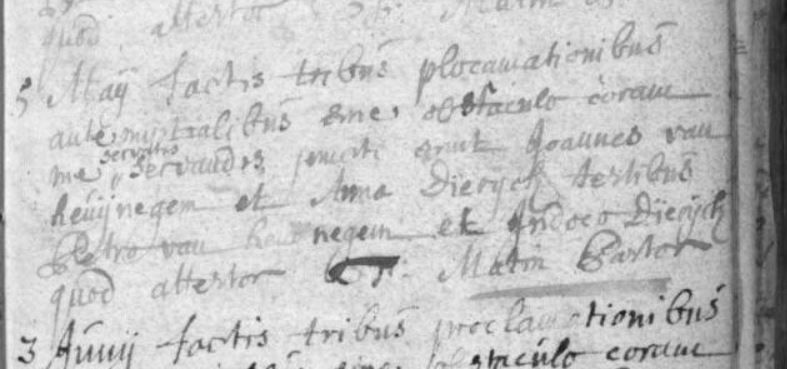 quod attestor Matin
5 Maÿ factis tribus plocamationibus
antenuptialibus sine obstaculo coram
me servatis servandis juncti sunt Joannes van
heuÿnegem et Anna Dierÿck testibus
Petro van heunegem et Judoco Dierÿck
quod attestor Matin Pastor
3 Junij factis tribus proclamationibus
sine obstaculo coram